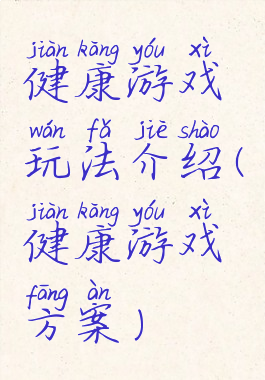 jiàn kāng yóu xì
健康游戏
wán fǎ jiè shào
玩法介绍(
jiàn kāng yóu xì
健康游戏
fāng àn
方案)